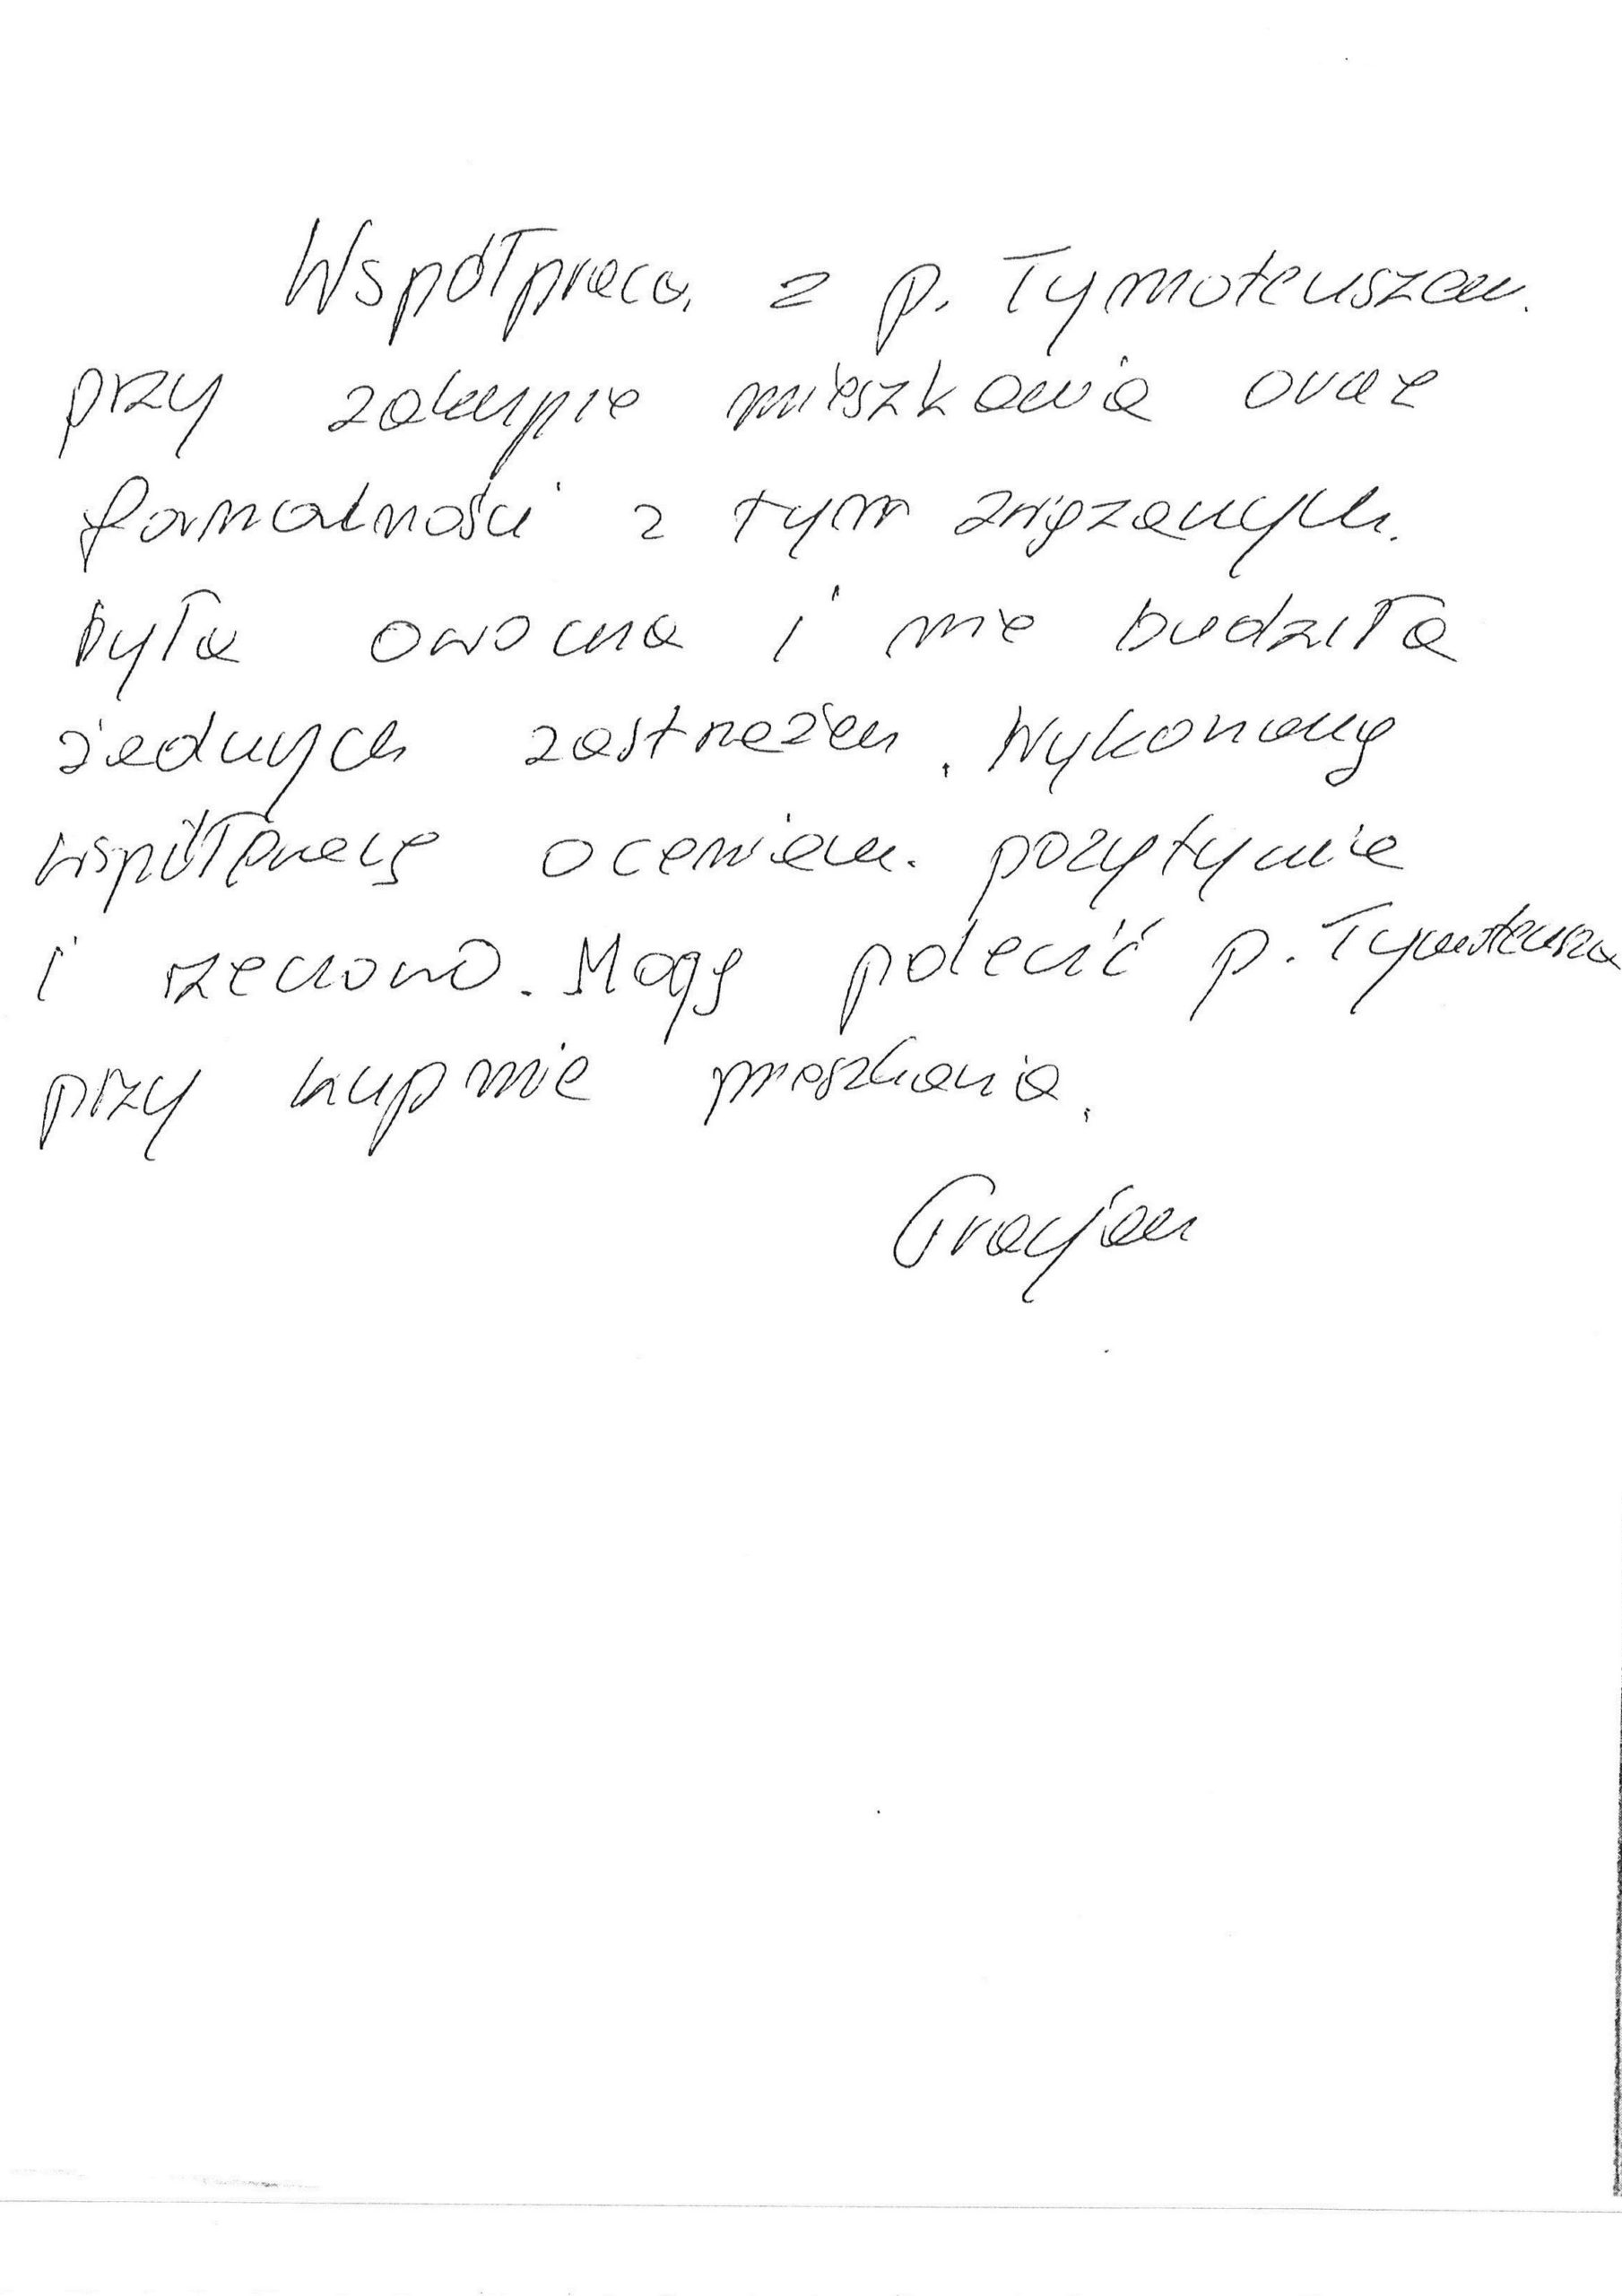 Współpraca z p. Tymoteuszem
przy zakupie mieszkania oraz
formalności z tym związanych
była owocna i nie budziła
żadnych zastrzeżeń. Wykonaną
współpracę oceniam pozytywnie
i rzeczowo. Mogę polecić p. Tymoteusza
przy kupnie mieszkania.
Gracjan